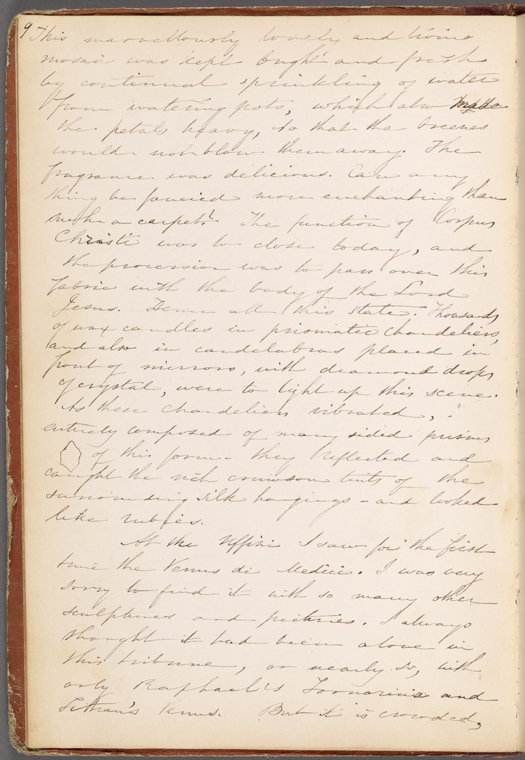 9 This marvellously lovely and living
mosaic was kept bright and fresh
by continual sprinkling of water
from watering pots, which also made
the petals heavy, so that the breezes
would not blow them away. The
fragrance was delicious. Can any
thing be fancied more enchanting than
such a carpet! The function of Corpus
Christi was to close today, and
the procession was to pass over this
fabric with the body of the Lord
Jesus. Hence all this state. Thousands
of wax candles in prismatic chandeliers,
and also in candelabras placed in
front of mirrors, with diamond drops
of crystal, were to light up this scene.
As these chandeliers vibrated,
entirely composed of many sided prisms
of this form - they reflected and
caught the rich crimson tints of the
surrounding silk hangings - and looked
like rubies.
At the Uffizi I saw for the first
time the Venus di Medici. I was very
sorry to find it with so many other
sculptures and pictures. I always
thought it had been alone in
this tribune, or nearly so, with
only Raphael's Fornarina and
Titian's Venus. But it is crowded,